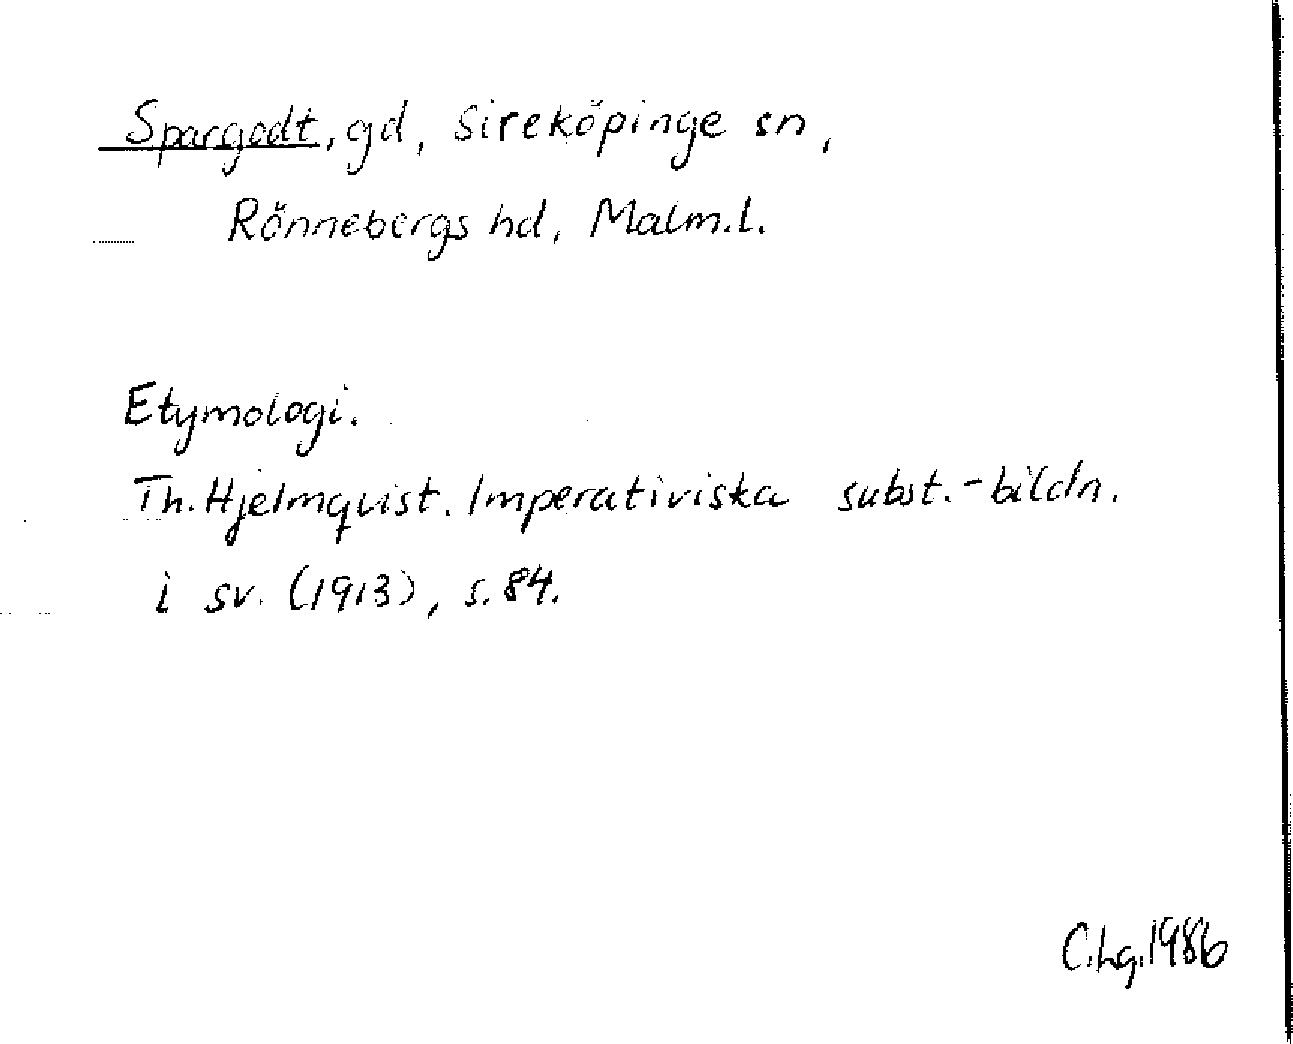 Spargodt, gd, Sireköpinge sn,
Rönnebergs hd, Malm.l.
Etymologi.
Th. Hjelmqvist. Imperativiska subst.-bildn.
i sv. (1913), s. 84.
C.Lg.1986